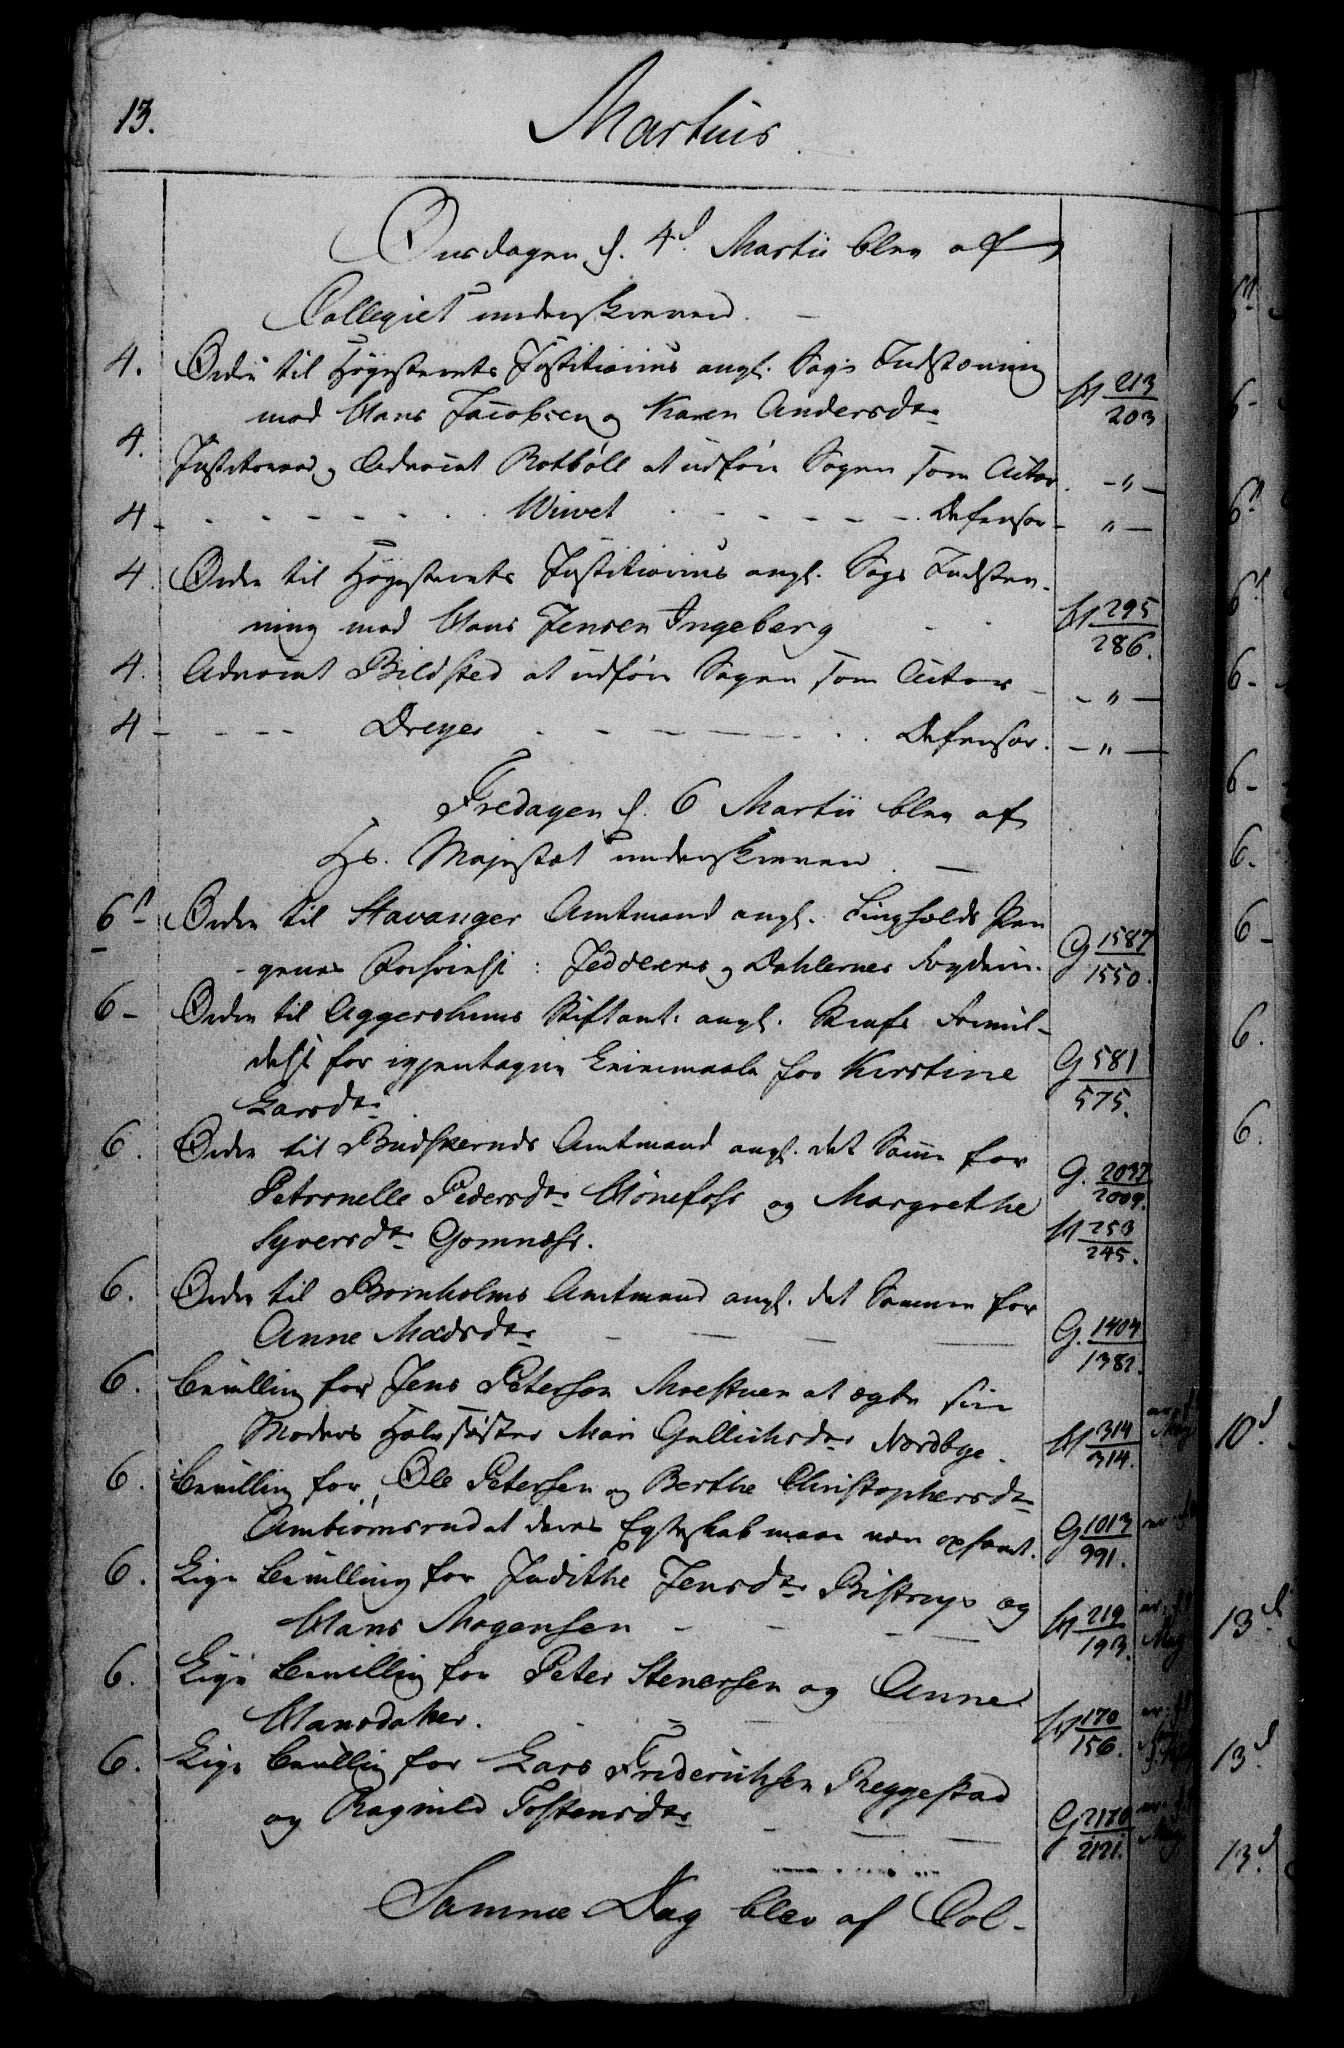 13.
Martius
Onsdagen d. 4d Martii blev af
Collegiet underskreven.
4. Ordre til Høyesterets Justitiarius angl. Sags Indstævning
mod Hans Jacobsen og Karen Andersdtr H 213/203
4. Justitsraad og Advocat Rotbøll at udføre Sagen som Actor. - " -
4 - - - - - - Wivet - - - - - Defensor - " -
4. Ordre til Høyesterets Justitiarius angl. Sags Indstev-
ning mod Hans Jensen Ingeberg H 295/286.
4. Advocat Bildsted at udføre Sagen som Actor - - " -
4 - - - - Dreyer - - - - - - Defensor. - " -
Fredagen d. 6 Martii blev af
Hs. Majestæt underskreven
6d - Ordre til Stavanger Amtmand angl. Pen
genes i Jedderens og Dahlernes Fogderie. G 1587/1550.
6 - Ordre til Aggershuus Stiftamt. angl. Straf
for igjentagen Leiermaale for Kirstine
Larsdtr G 581/575.
6. Ordre til Budskeruds Amtmand angl. det Samme for
Petronelle Pedersdtr Hønefoss og Margrethe G. 2037/2009.
Syversdtr Gomnæss. H 253/245.
6. Ordre til Bornholms Amtmand angl. det Samme for
Anne Madsdtr G. 1404/1382.
6. Bevilling for Jens Peterson Moestuen at ægte sin
Moders Halvsøster Mari Gullichsdtr Nordbye. H 314/314.
6. Bevilling for Ole Petersen og Berthe Christophersdtr
Ambiørnsrud at deres Egteskab maae være ophævet. G 1013/991.
6. Lige Bevilling for Judithe Jensdtr Bistrup og
Hans Mogensen H 219/193.
6. Lige Bevilling for Peter Stenersen og Anne
Hansdatter. H 170/156.
6. Lige Bevilling for Lars Frederichsen Reggestad
og Ragnild Tostensdtr G 2170/2121.
Samme Dag blev af Col-
6
6.
6 -
6.
6.
10d
13d
13d
13d